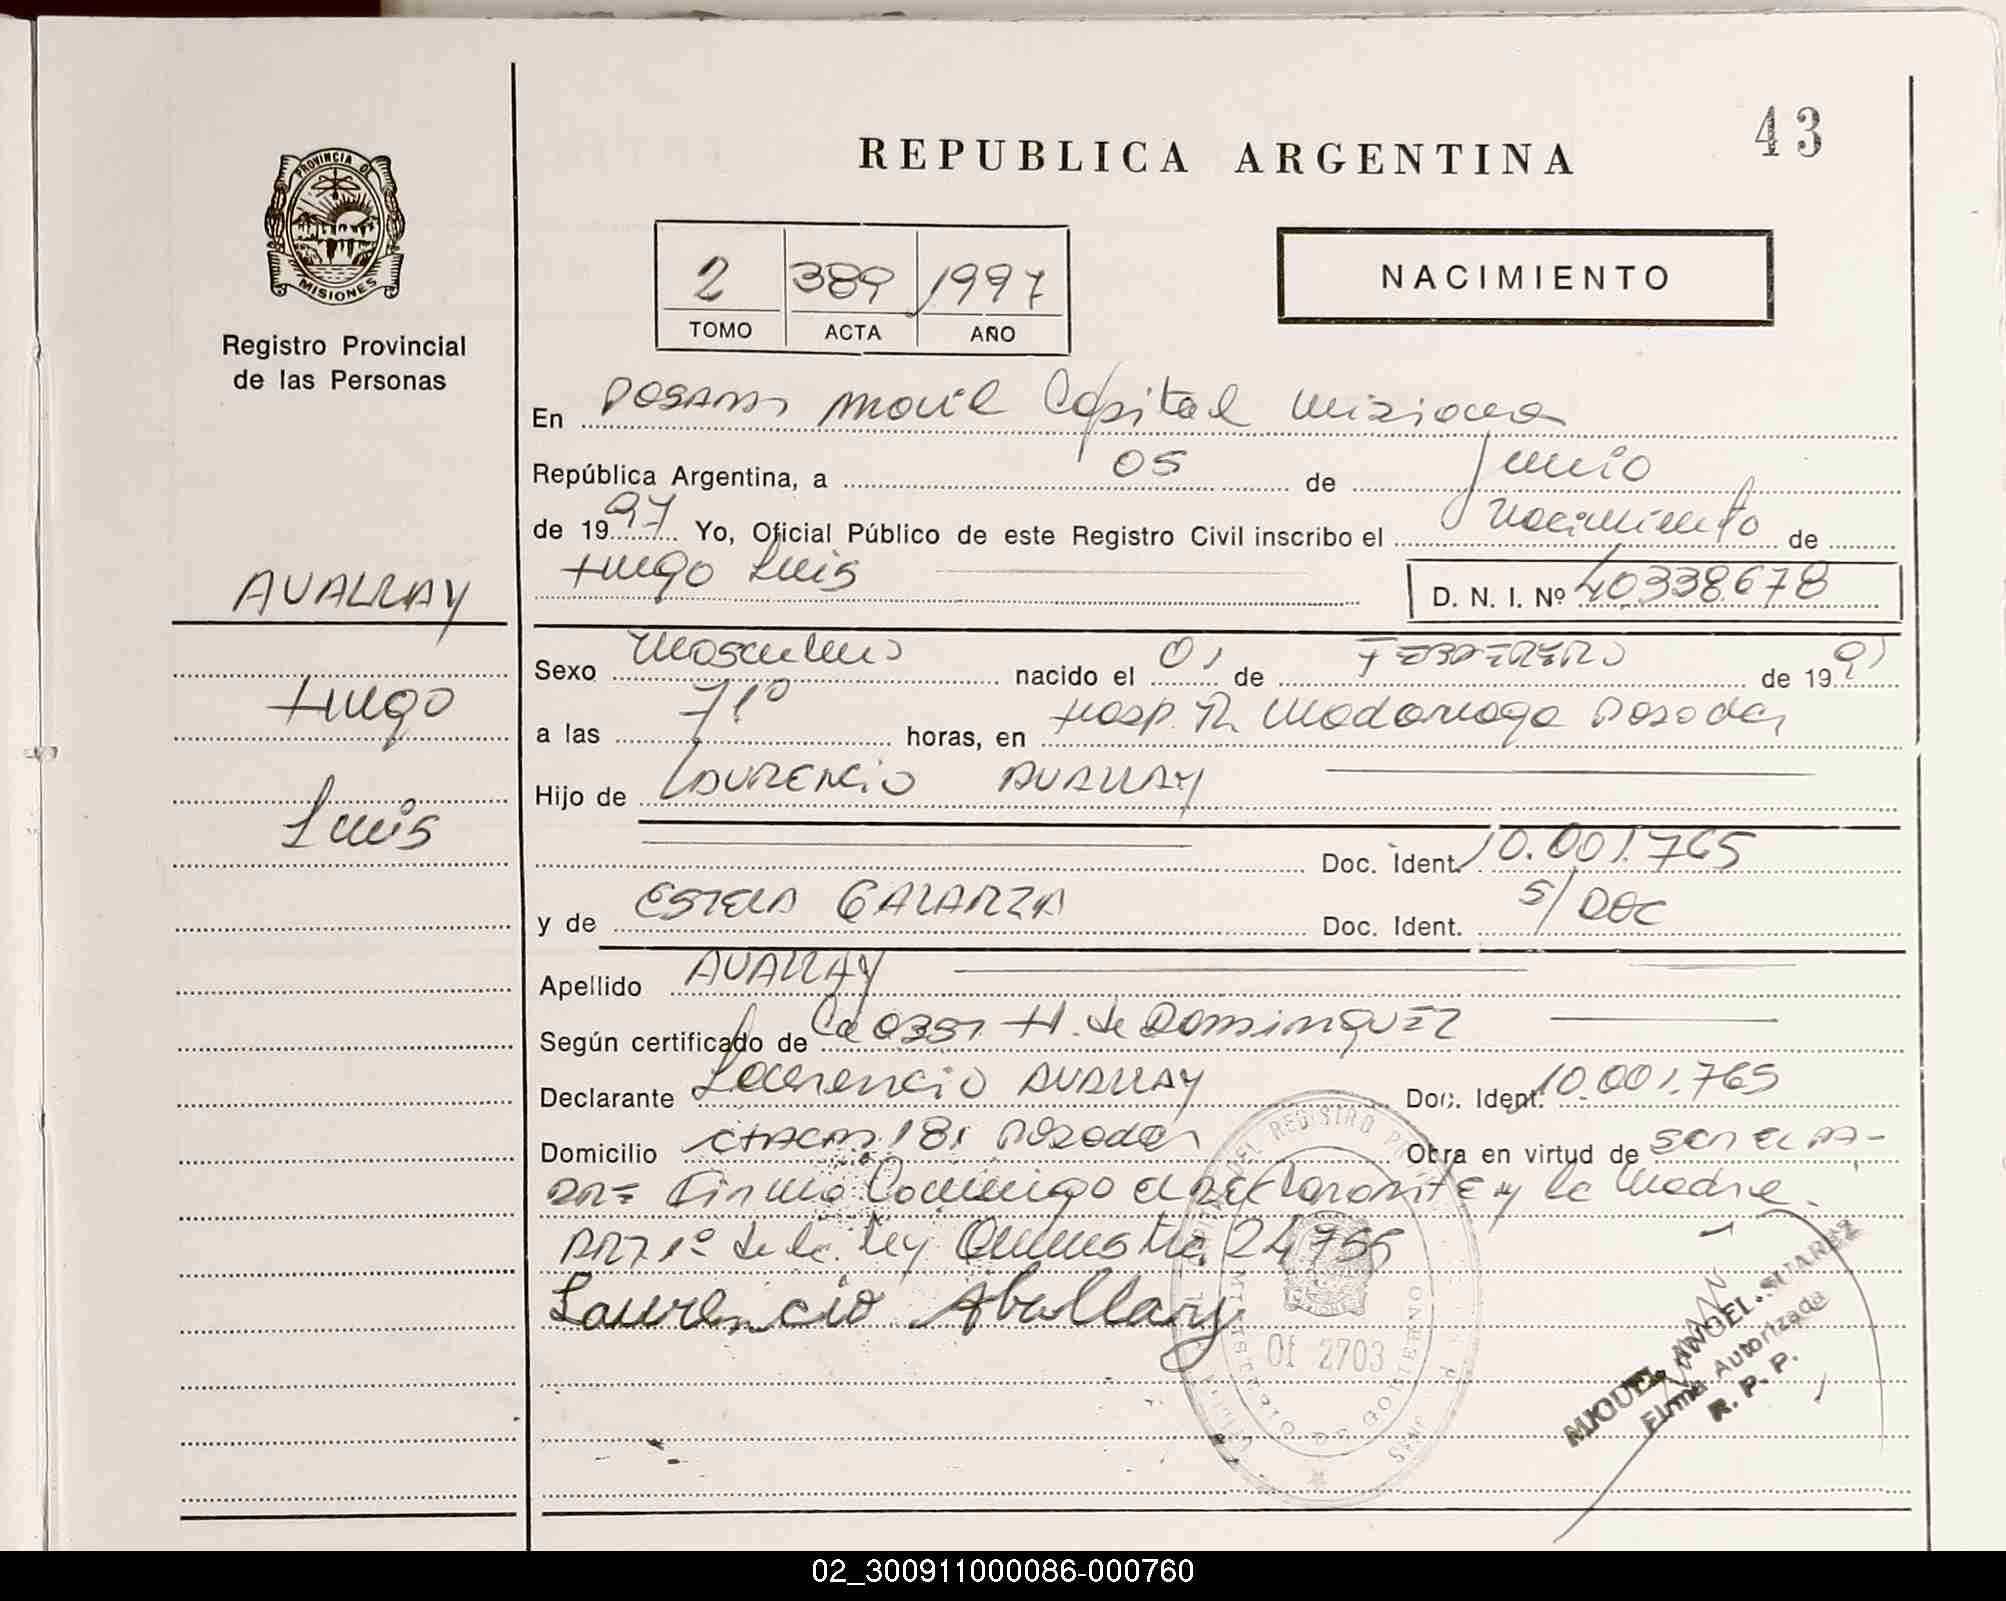 43
REPUBLICA ARGENTINA
PROVINCIA DE
MISIONES
Registro Provincial
de las Personas
2 389 1997
TOMO ACTA AÑO
NACIMIENTO
En Posadas Movil Capital Misiones
República Argentina, a 05 de Junio
de 1997 Yo, Oficial Público de este Registro Civil inscribo el Nacimiento de
Hugo Luis D. N. I. Nº 40338678
AVALLAY
Hugo
Luis
Sexo Masculino nacido el 01 de FEBRERO de 199
a las horas, en Hosp. R. Madariaga Posadas
Hijo de LAURENCIO AVALLAY
Doc. Ident. 10.001.765
y de ESTELA GALARZA Doc. Ident. S/DOC
Apellido AVALLAY
Según certificado de H. de DOMINGUEZ
Declarante Laurencio AVALLAY Doc. Ident. 10.001.765
Domicilio CHACRA 181 Posadas Obra en virtud de SER EL PA-
DRE Firma Conmigo el DECLARANTE y la Madre.
ART 1º de la ley 24755
Laurencio Aballary
CAPITAL DEL REGISTRO
MINISTERIO DE GOBIERNO
Of 2703
MIGUEL ANGEL SUAREZ
Firma Autorizada
R. P. P.
02_300911000086-000760